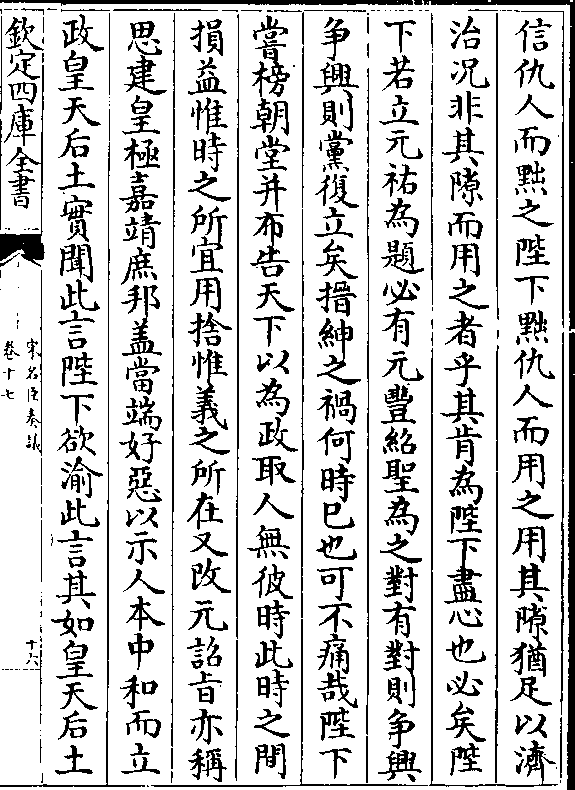 信仇人而黜之陛下黜仇人而用之用其隙猶足以濟
治况非其隙而用之者乎其肯為陛下盡心也必矣陛
下若立元祐為題必有元豐紹聖為之對有對則争興
争興則黨復立矣搢紳之禍何時已也可不痛哉陛下
嘗榜朝堂并布告天下以為政取人無彼時此時之間
損益惟時之所宜用捨惟義之所在又改元詔㫖亦稱
思建皇極嘉靖庶邦盖當端好惡以示人本中和而立
政皇天后土實聞此言陛下欲渝此言其如皇天后土
欽定四庫全書
宋名臣奏議
卷十七
十六